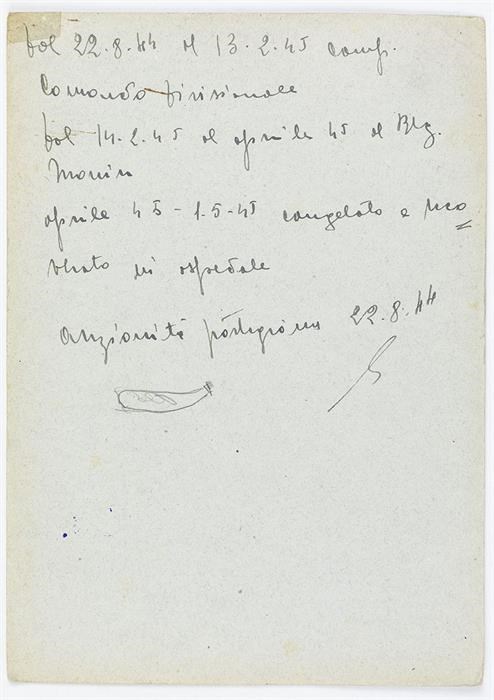 Dal 22.8.44 al 13.2.45 comp.
Comando Divisionale
Dal 14.2.45 al aprile 45 al Btg.
aprile 45 - 1.5.45 congelato e rico
verato in ospedale
anzianità partigiana 22.8.44